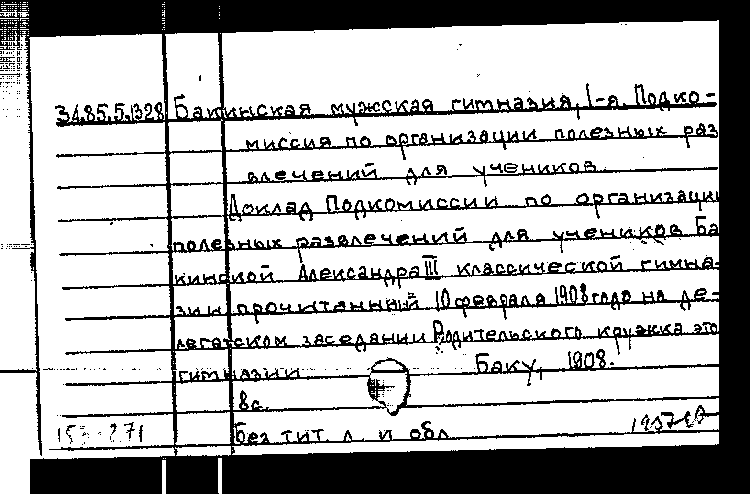 34.85.5.1328 Бакинская мужская гимназия, 1-я. Подко-
миссия по организации полезных раз
влечений для учеников.
Доклад Подкомиссии по организации
полезных развлечений для учеников Ба
кинской Александра III классической гимна-
зии прочитанный 10 февраля 1908 года на де-
легатском заседании Родительского кружка это
гимназии. Баку, 1908.
8с.
Без тит. л. и обл.